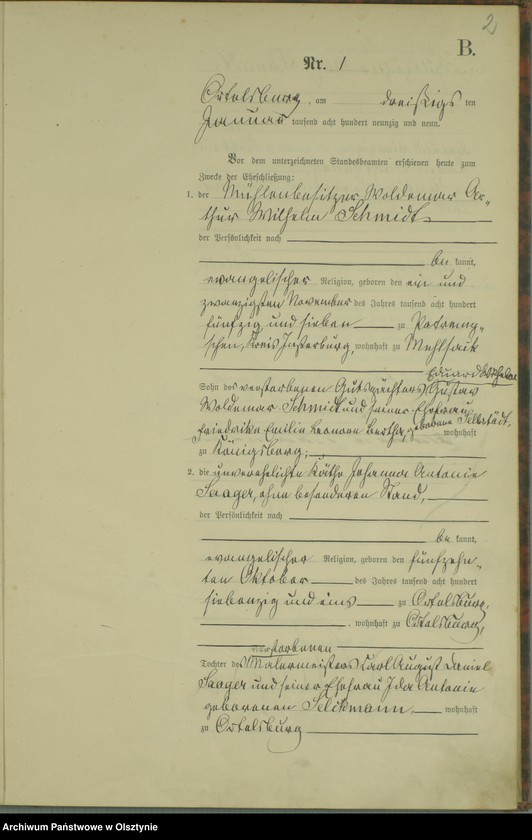 2
B.
Nr. 1
Ortelsburg, am dreißigsten
Januar tausend acht hundert neunzig und neun.
Vor dem unterzeichneten Standesbeamten erschienen heute zum
Zwecke der Eheschließung:
1. der Mühlenbesitzer Woldemar Ar-
thur Wilhelm Schmidt
der Persönlichkeit nach
be kannt,
evangelischer Religion, geboren den ein und
zwanzigsten November des Jahres tausend acht hundert
fünfzig und sieben zu
schen, Kreis Insterburg, wohnhaft zu Mehlsack
Eduard Wilhelm
Sohn des verstorbenen Gutspächters Gustav
Woldemar Schmidt und seiner Ehefrau
Friederike Emilie Leonore Bertha, geborene wohnhaft
zu Königsberg;
2. die unverehelichte Käthe Johanna Antonie
Saager, ohne besonderen Stand,
der Persönlichkeit nach
be kannt,
evangelischer Religion, geboren den fünfzehn-
ten Oktober des Jahres tausend acht hundert
siebenzig und eins zu Ortelsburg,
, wohnhaft zu Ortelsburg,
verstorbenen
Tochter des Malermeisters Carl August Daniel
Saager und seiner Ehefrau Ida Antonie
geborenen wohnhaft
zu Ortelsburg
Archiwum Państwowe w Olsztynie